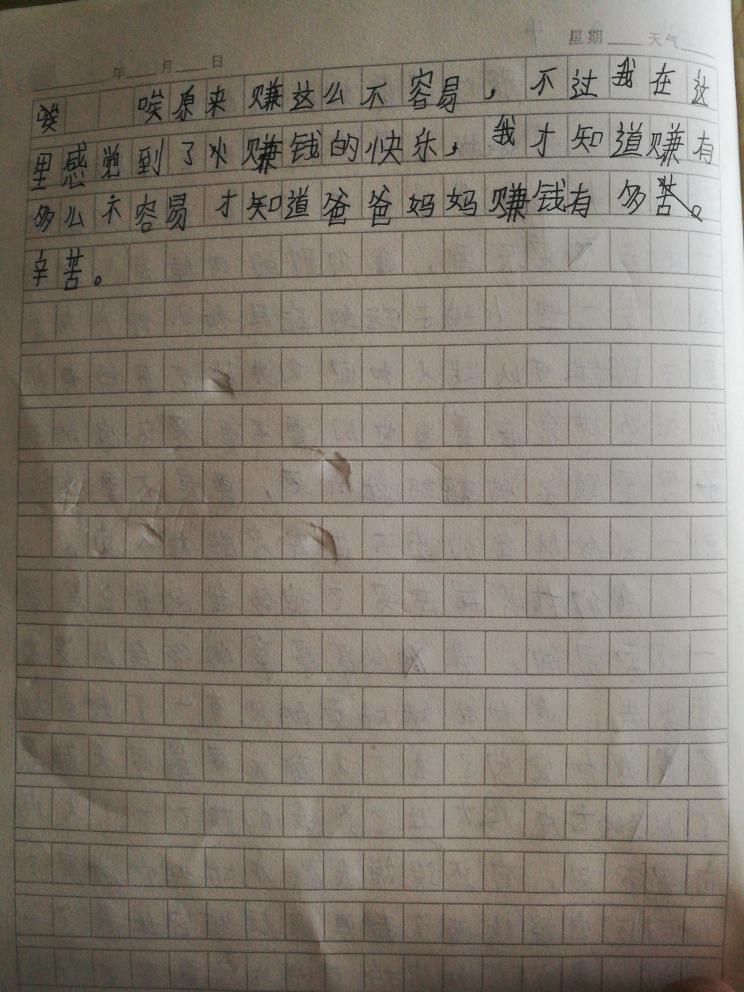 星期 天气
年 月 日
唉 唉原来 赚这么不 容易，不过我在这
里感觉到了 赚钱的快乐，我才知道赚有
多么不容易 才知道爸爸妈妈赚钱有多苦。
辛苦。